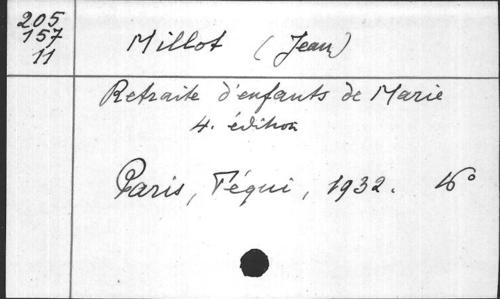 205
157
11
Millot (Jean)
Retraite d'enfants de Marie
4. édition
Paris, Téqui, 1932. 16°